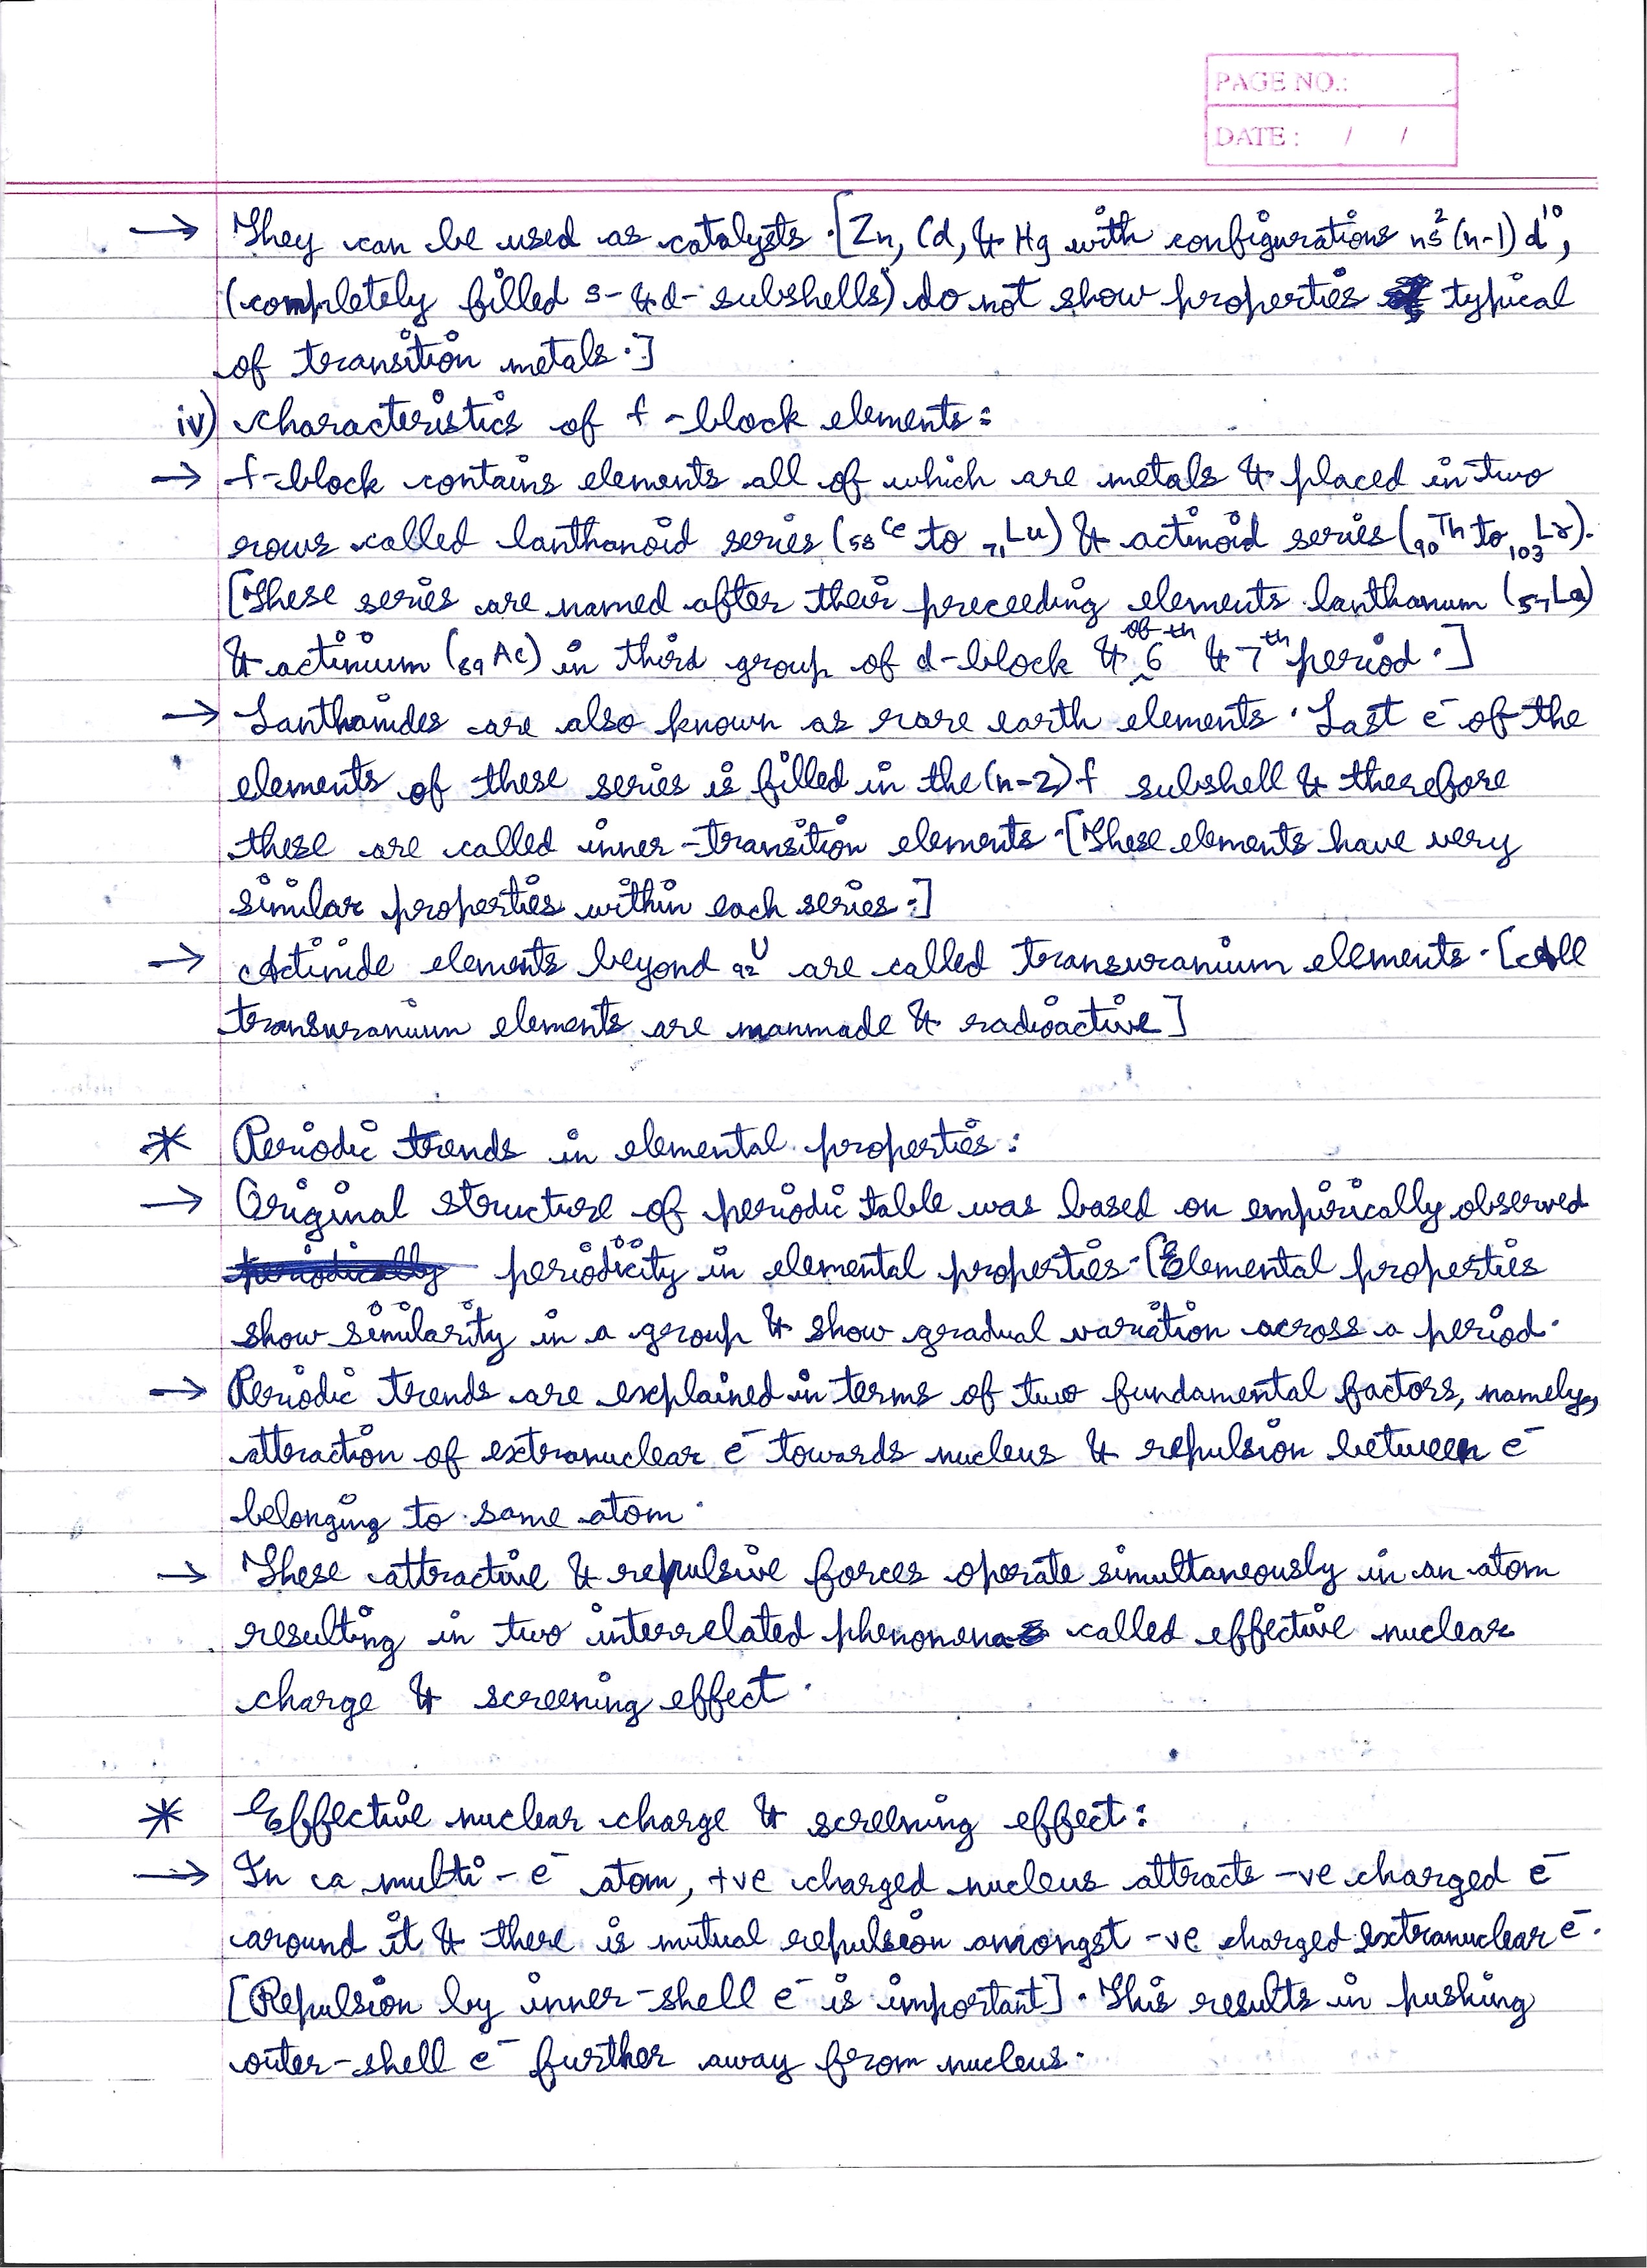 PAGE NO.:
DATE : / /
→ They can be used as catalysts. [Zn, Cd, & Hg with configurations ns² (n-1) d¹⁰,
(completely filled s- & d- subshells) do not show properties typical
of transition metals.]
iv) Characteristics of f-block elements:
→ f-block contains elements all of which are metals & placed in two
rows called lanthanoid series (₅₈Ce to ₇₁Lu) & actinoid series (₉₀Th to ₁₀₃Lr).
[These series are named after their preceeding elements lanthanum (₅₇La)
& actinium (₈₉Ac) in third group of d-block & of 6th & 7th period.]
→ Lanthanides are also known as rare earth elements. Last e⁻ of the
elements of these series is filled in the (n-2) f subshell & therefore
these are called inner-transition elements. [These elements have very
similar properties within each series.]
→ Actinide elements beyond ₉₂U are called transuranium elements. [All
transuranium elements are manmade & radioactive]
* Periodic trends in elemental properties:
→ Original structure of periodic table was based on empirically observed
periodically periodicity in elemental properties. [Elemental properties
show similarity in a group & show gradual variation across a period.
→ Periodic trends are explained in terms of two fundamental factors, namely,
attraction of extranuclear e⁻ towards nucleus & repulsion between e⁻
belonging to same atom.
→ These attractive & repulsive forces operate simultaneously in an atom
resulting in two interrelated phenomena called effective nuclear
charge & screening effect.
* Effective nuclear charge & screening effect:
→ In a multi-e⁻ atom, +ve charged nucleus attracts -ve charged e⁻
around it & there is mutual repulsion amongst -ve charged extranuclear e⁻.
[Repulsion by inner-shell e⁻ is important]. This results in pushing
outer-shell e⁻ further away from nucleus.